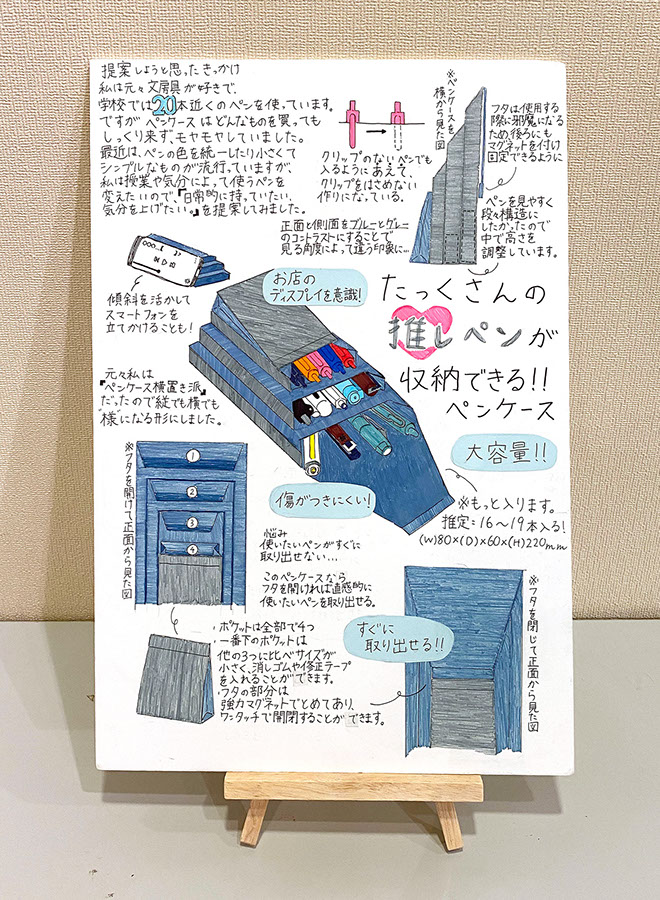 提案しようと思ったきっかけ
私は元々文房具が好きで、
学校では20本近くのペンを使っています。
ですがペンケースはどんなものを買っても
しっくり来ず、モヤモヤしていました。
最近は、ペンの色を統一したり小さくて
シンプルなものが流行っていますが、
私は授業や気分によって使うペンを
変えたいので、『日常的に持っていたい、
気分を上げたい。』を提案してみました。
クリップのないペンでも
入るようにあえて、
クリップをはさめない
作りになっている。
※ペンケースを
横から見た図
フタは使用する
際に邪魔になる
ため、後ろにも
マグネットを付け
固定できるように
ペンを見やすく
段々構造に
したかったので
中で高さを
調整しています。
正面と側面をブルーとグレー
のコントラストにすることで
見る角度によって違う印象に…
傾斜を活かして
スマートフォンを
立てかけることも!
お店の
ディスプレイを意識!
たっくさんの
推しペンが
収納できる!!
ペンケース
元々私は
『ペンケース横置き派』
だったので縦でも横でも
"様"になる形にしました。
大容量!!
※もっと入ります。
推定=16〜19本入る!
(W)80×(D)×60×(H)220mm
傷がつきにくい!
※フタを開けて正面から見た図
1
2
3
4
悩み
使いたいペンがすぐに
取り出せない…
このペンケースなら
フタを開ければ直感的に
使いたいペンを取り出せる。
・ポケットは全部で4つ
・一番下のポケットは
他の3つに比べサイズが
小さく、消しゴムや修正テープ
を入れることができます。
・フタの部分は
強力マグネットでとめてあり、
ワンタッチで開閉することができます。
すぐに
取り出せる!!
※フタを閉じて正面から見た図